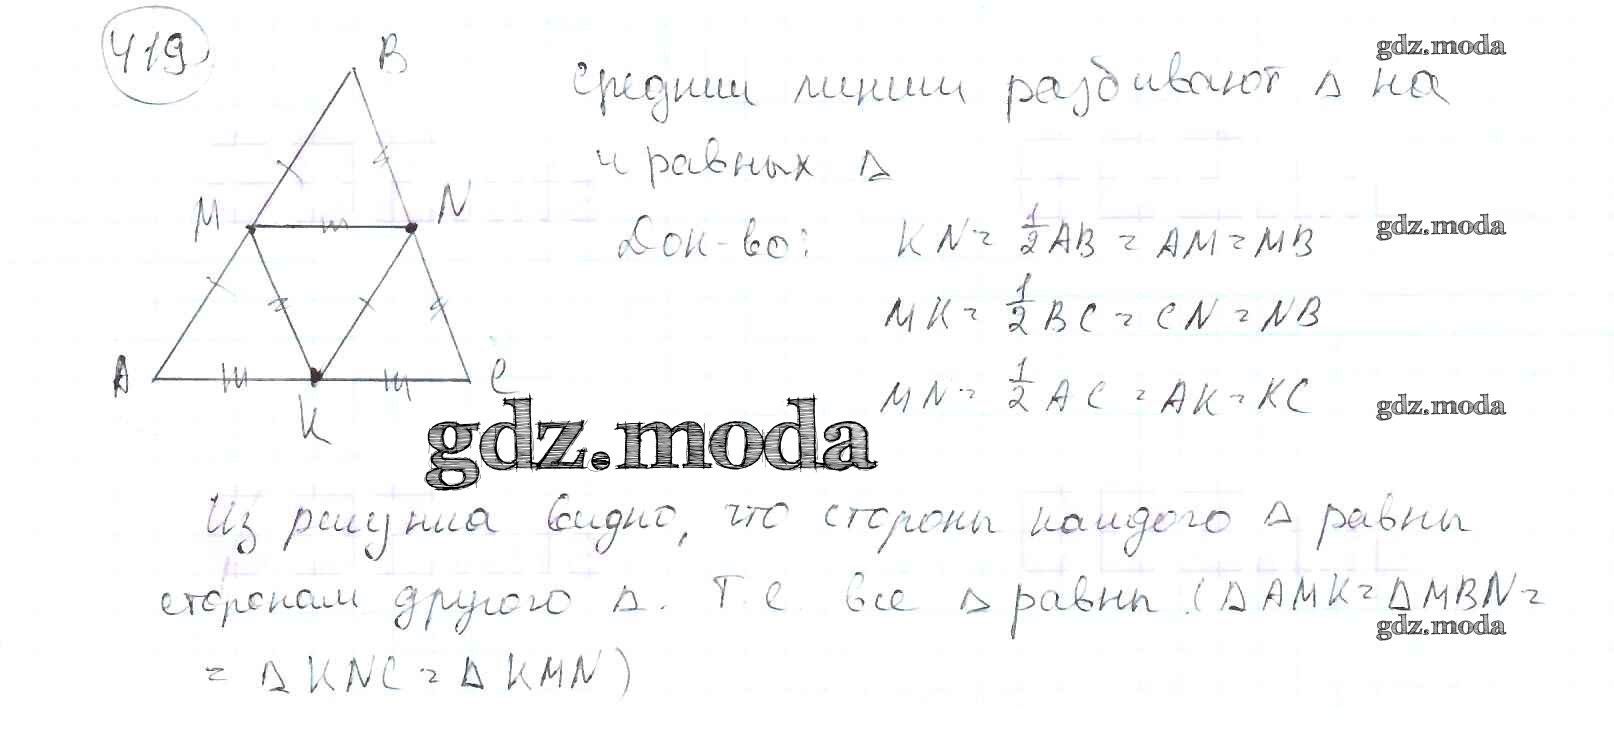 419
B
M
N
A
K
C
gdz.moda
Средние линии разбивают Δ на
4 равных Δ
gdz.moda
Док-во: KN = 1/2 AB = AM = MB
MK = 1/2 BC = CN = NB
MN = 1/2 AC = AK = KC
gdz.moda
gdz.moda
Из рисунка видно, что стороны каждого Δ равны
сторонам другого Δ. Т.е. все Δ равны (Δ AMK = Δ MBN =
gdz.moda
= Δ KNC = Δ KMN)